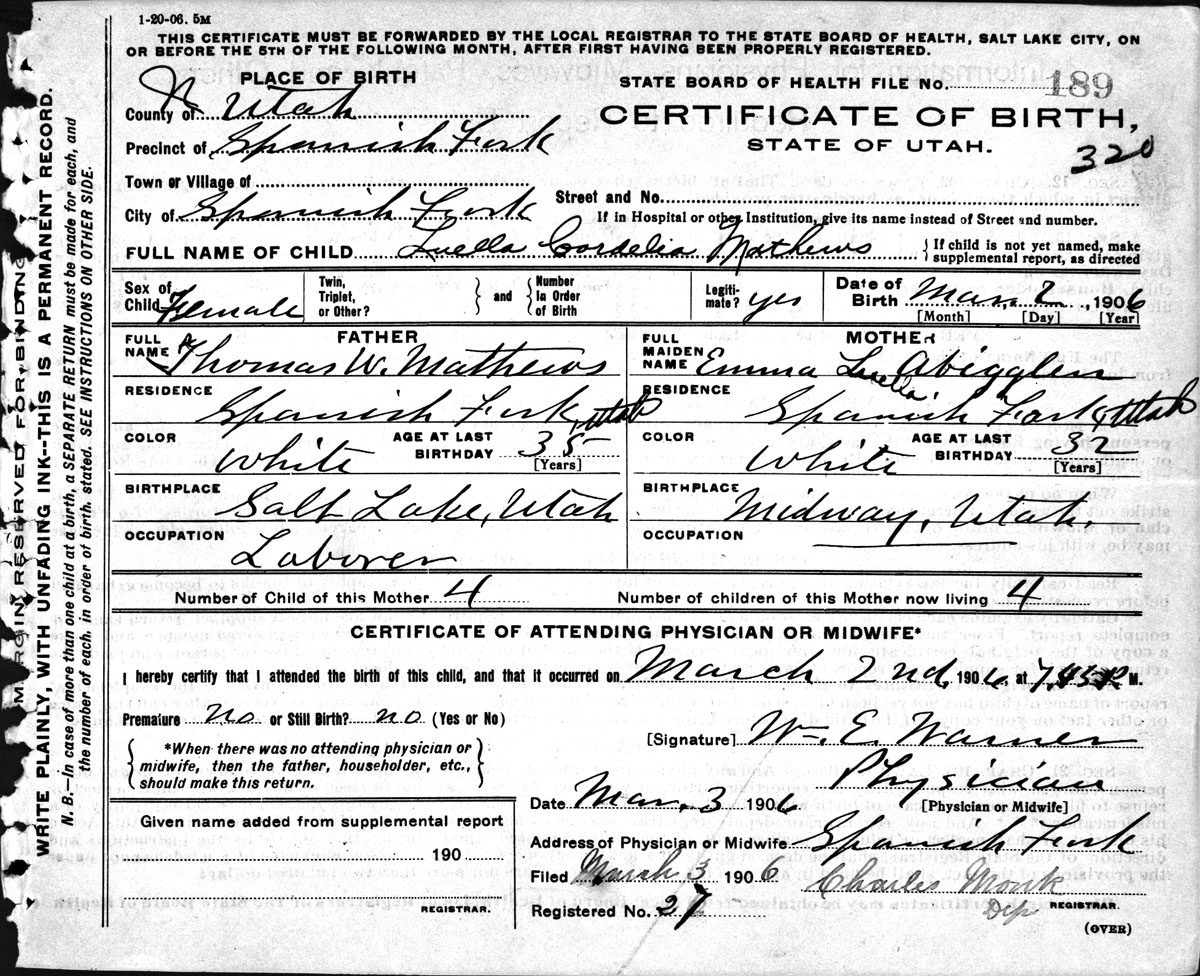 1-20-06. 5M
THIS CERTIFICATE MUST BE FORWARDED BY THE LOCAL REGISTRAR TO THE STATE BOARD OF HEALTH, SALT LAKE CITY, ON
OR BEFORE THE 5TH OF THE FOLLOWING MONTH, AFTER FIRST HAVING BEEN PROPERLY REGISTERED.
MARGIN RESERVED FOR BINDING
WRITE PLAINLY, WITH UNFADING INK--THIS IS A PERMANENT RECORD.
N. B.--In case of more than one child at a birth, a SEPARATE RETURN must be made for each, and
the number of each, in order of birth, stated. SEE INSTRUCTIONS ON OTHER SIDE.
PLACE OF BIRTH
County of Utah
Precinct of Spanish Fork
Town or Village of
City of Spanish Fork
STATE BOARD OF HEALTH FILE No. 189
CERTIFICATE OF BIRTH,
STATE OF UTAH.
320
Street and No.
If in Hospital or other Institution, give its name instead of Street and number.
FULL NAME OF CHILD Luella Cordelia Mathews { If child is not yet named, make
supplemental report, as directed
Sex of Child Female
Twin, Triplet, or Other? } and { Number In Order of Birth
Legiti-mate? yes
Date of Birth Mar. 2, 1906
[Month] [Day] [Year]
FATHER
FULL NAME Thomas W. Mathews
RESIDENCE
Spanish Fork, Utah
COLOR White AGE AT LAST BIRTHDAY 35
[Years]
BIRTHPLACE
Salt Lake, Utah
OCCUPATION
Laborer
MOTHER
FULL MAIDEN NAME Emma Luella Abigglen
RESIDENCE
Spanish Fork, Utah
COLOR White AGE AT LAST BIRTHDAY 32
[Years]
BIRTHPLACE
Midway, Utah.
OCCUPATION
Number of Child of this Mother 4 Number of children of this Mother now living 4
CERTIFICATE OF ATTENDING PHYSICIAN OR MIDWIFE*
I hereby certify that I attended the birth of this child, and that it occurred on March 2nd, 1906, at 7,45 P M.
Premature no or Still Birth? no (Yes or No)
{ *When there was no attending physician or
midwife, then the father, householder, etc.,
should make this return. }
[Signature] Wm. E. Warner
Physician
Date Mar. 3 1906 [Physician or Midwife]
Given name added from supplemental report
190
REGISTRAR.
Address of Physician or Midwife Spanish Fork
Filed March 3 1906 Charles Monk
Dep REGISTRAR.
Registered No. 27
(OVER)